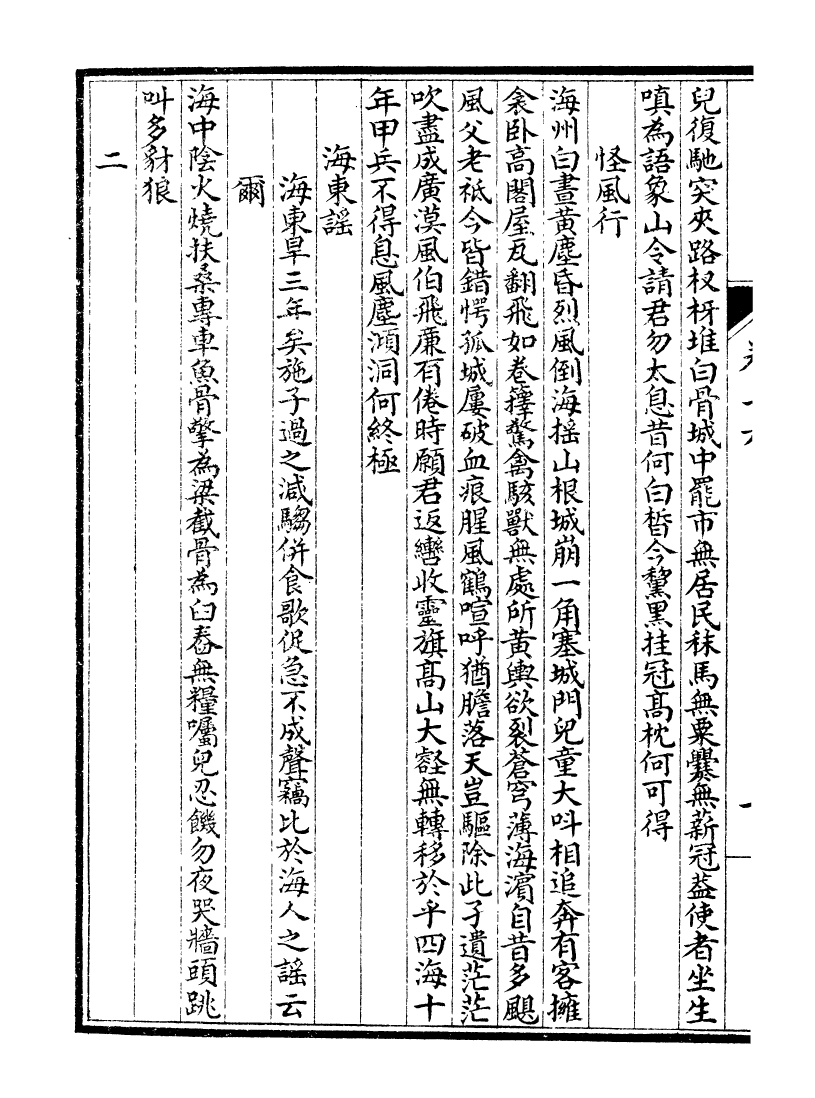 兒復馳突夾路杈枒堆白骨城中罷市無居民秣馬無粟爨無薪冠葢使者坐生
嗔為語象山令請君勿太息昔何白晳今黧黑挂冠髙枕何可得
怪風行
海州白晝黃塵昏烈風倒海揺山根城崩一角塞城門兒童大呌相追奔有客擁
衾卧高閣屋瓦翻飛如卷籜驚禽駭獸無處所黄輿欲裂蒼穹薄海濵自昔多颶
風父老祗今皆錯愕孤城屢破血痕腥風鶴喧呼猶膽落天豈驅除此孑遺茫茫
吹盡成廣漠風伯飛亷有倦時願君返轡收靈旗髙山大壑無轉移於乎四海十
年甲兵不得息風塵澒洞何終極
海東謡
海東旱三年矣施子過之减騶併食歌促急不成聲竊比於海人之謡云
爾
海中陰火燒扶桑專車魚骨擎為梁截骨為臼舂無糧囑兒忍饑勿夜哭牆頭跳
叫多豺狼
二